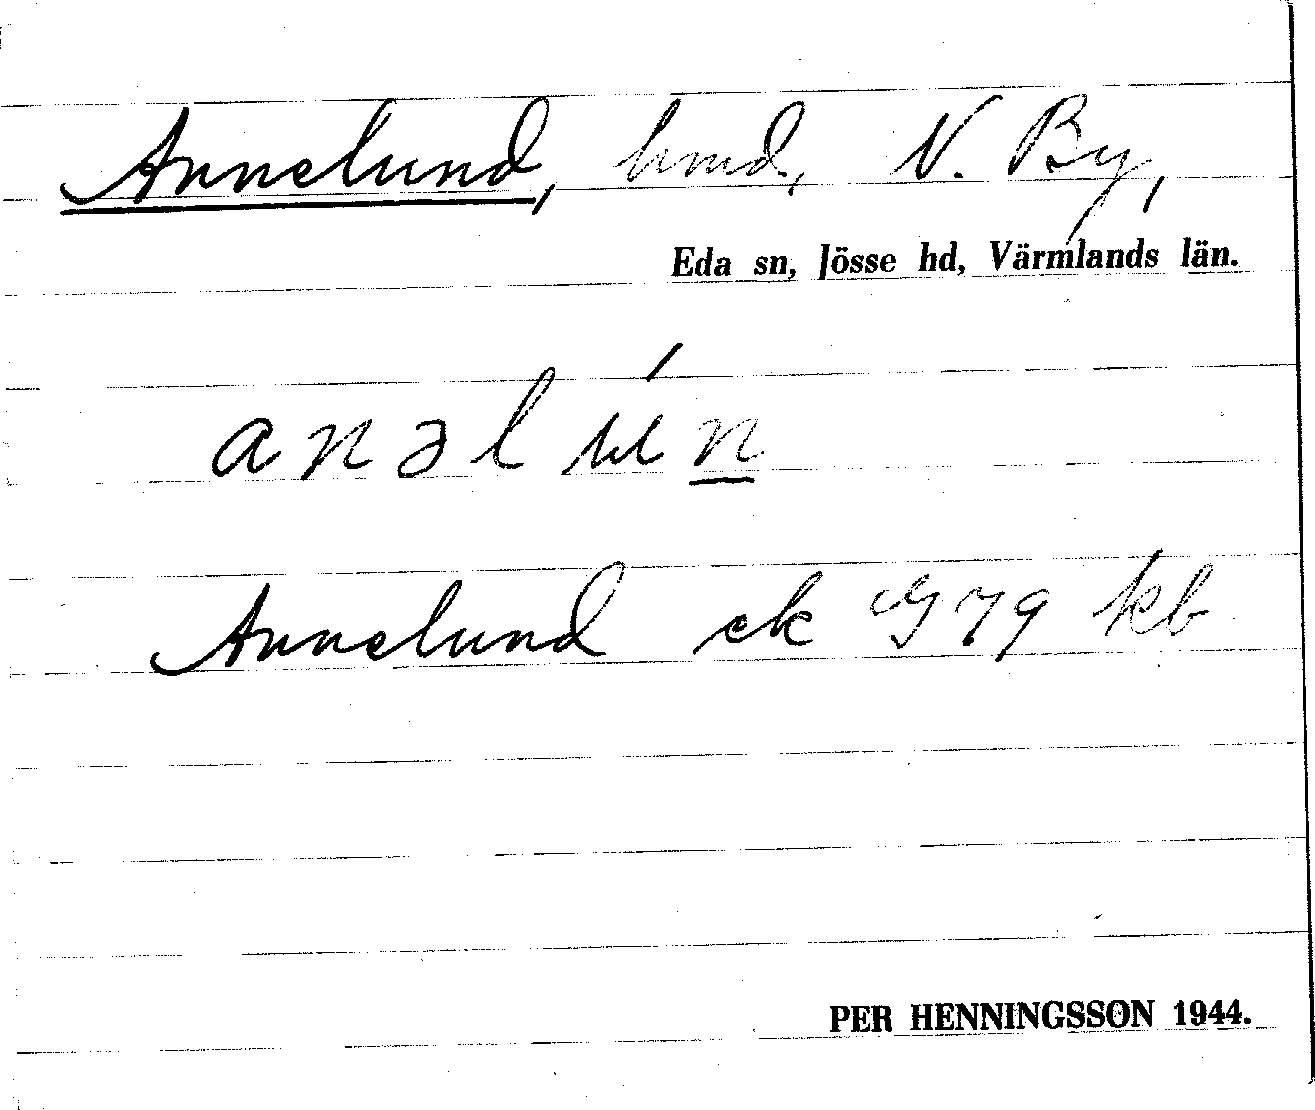 Annelund, hmd, N. By,
Eda sn, Jösse hd, Värmlands län.
anəlún
Annelund ek 979 kb
PER HENNINGSSON 1944.